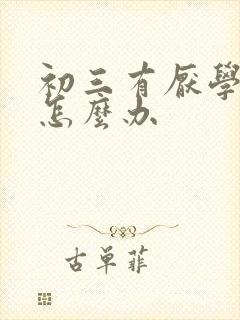 初三有厭學
怎麼办
古单菲